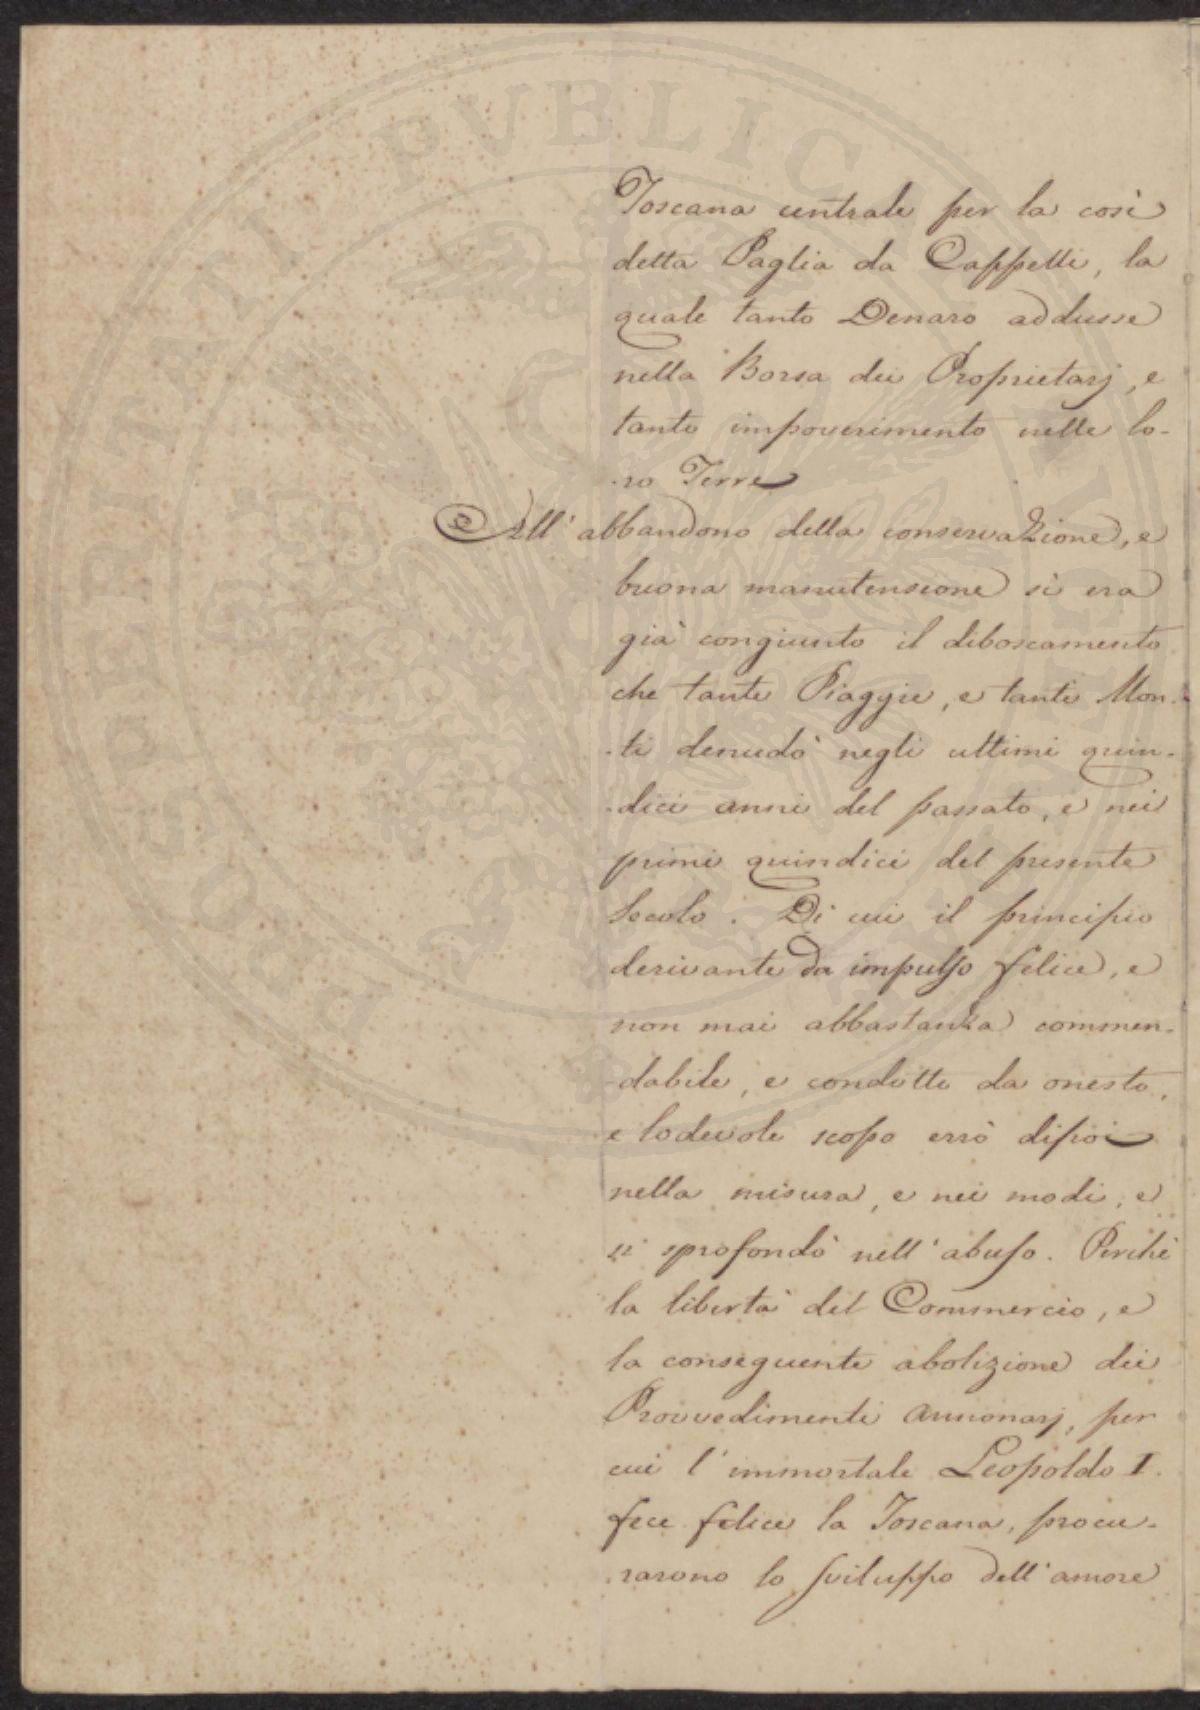 Toscana centrale per la così
detta Paglia da Cappelli, la
quale tanto Denaro addusse
nella Borsa dei Proprietarj, e
tanto impoverimento nelle lo-
-ro Terre
All' abbandono della conservazione, e
buona manutensione si era
già congiunto il diboscamento
che tante Piaggie, e tanti Mon-
-ti denudò negli ultimi quin-
-dici anni del passato, e nei
primi quindici del presente
Secolo. Di cui il principio
derivante da impulso felice, e
non mai abbastanza commen-
-dabile, e condotto da onesto,
e lodevole scopo errò dipoi
nella misura, e nei modi, e
si sprofondò nell' abuso. Perchè
la libertà del Commercio, e
la conseguente abolizione dei
Provvedimenti Annonarj, per
cui l' immortale Leopoldo I.
fece felice la Toscana, procu-
-rarono lo sviluppo dell' amore